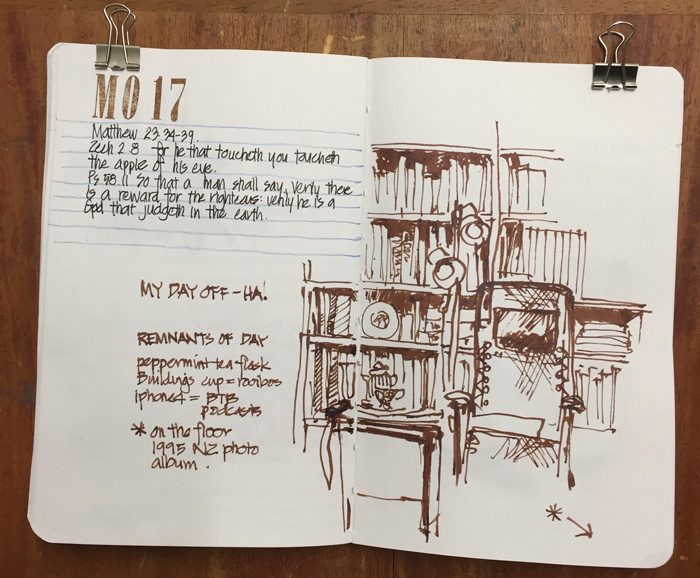 MO 17
Matthew 23.34-39.
Zech 2.8 for he that toucheth you toucheth
the apple of his eye.
Ps 58.11 So that a man shall say, Verily there
is a reward for the righteous: verily he is a
God that judgeth in the earth.
MY DAY OFF - HA!
REMNANTS OF DAY
peppermint tea-flask
Buildings cup = rooibos
iphone4 = BTB
podcasts
* on the floor
1995 NZ photo
album.
*